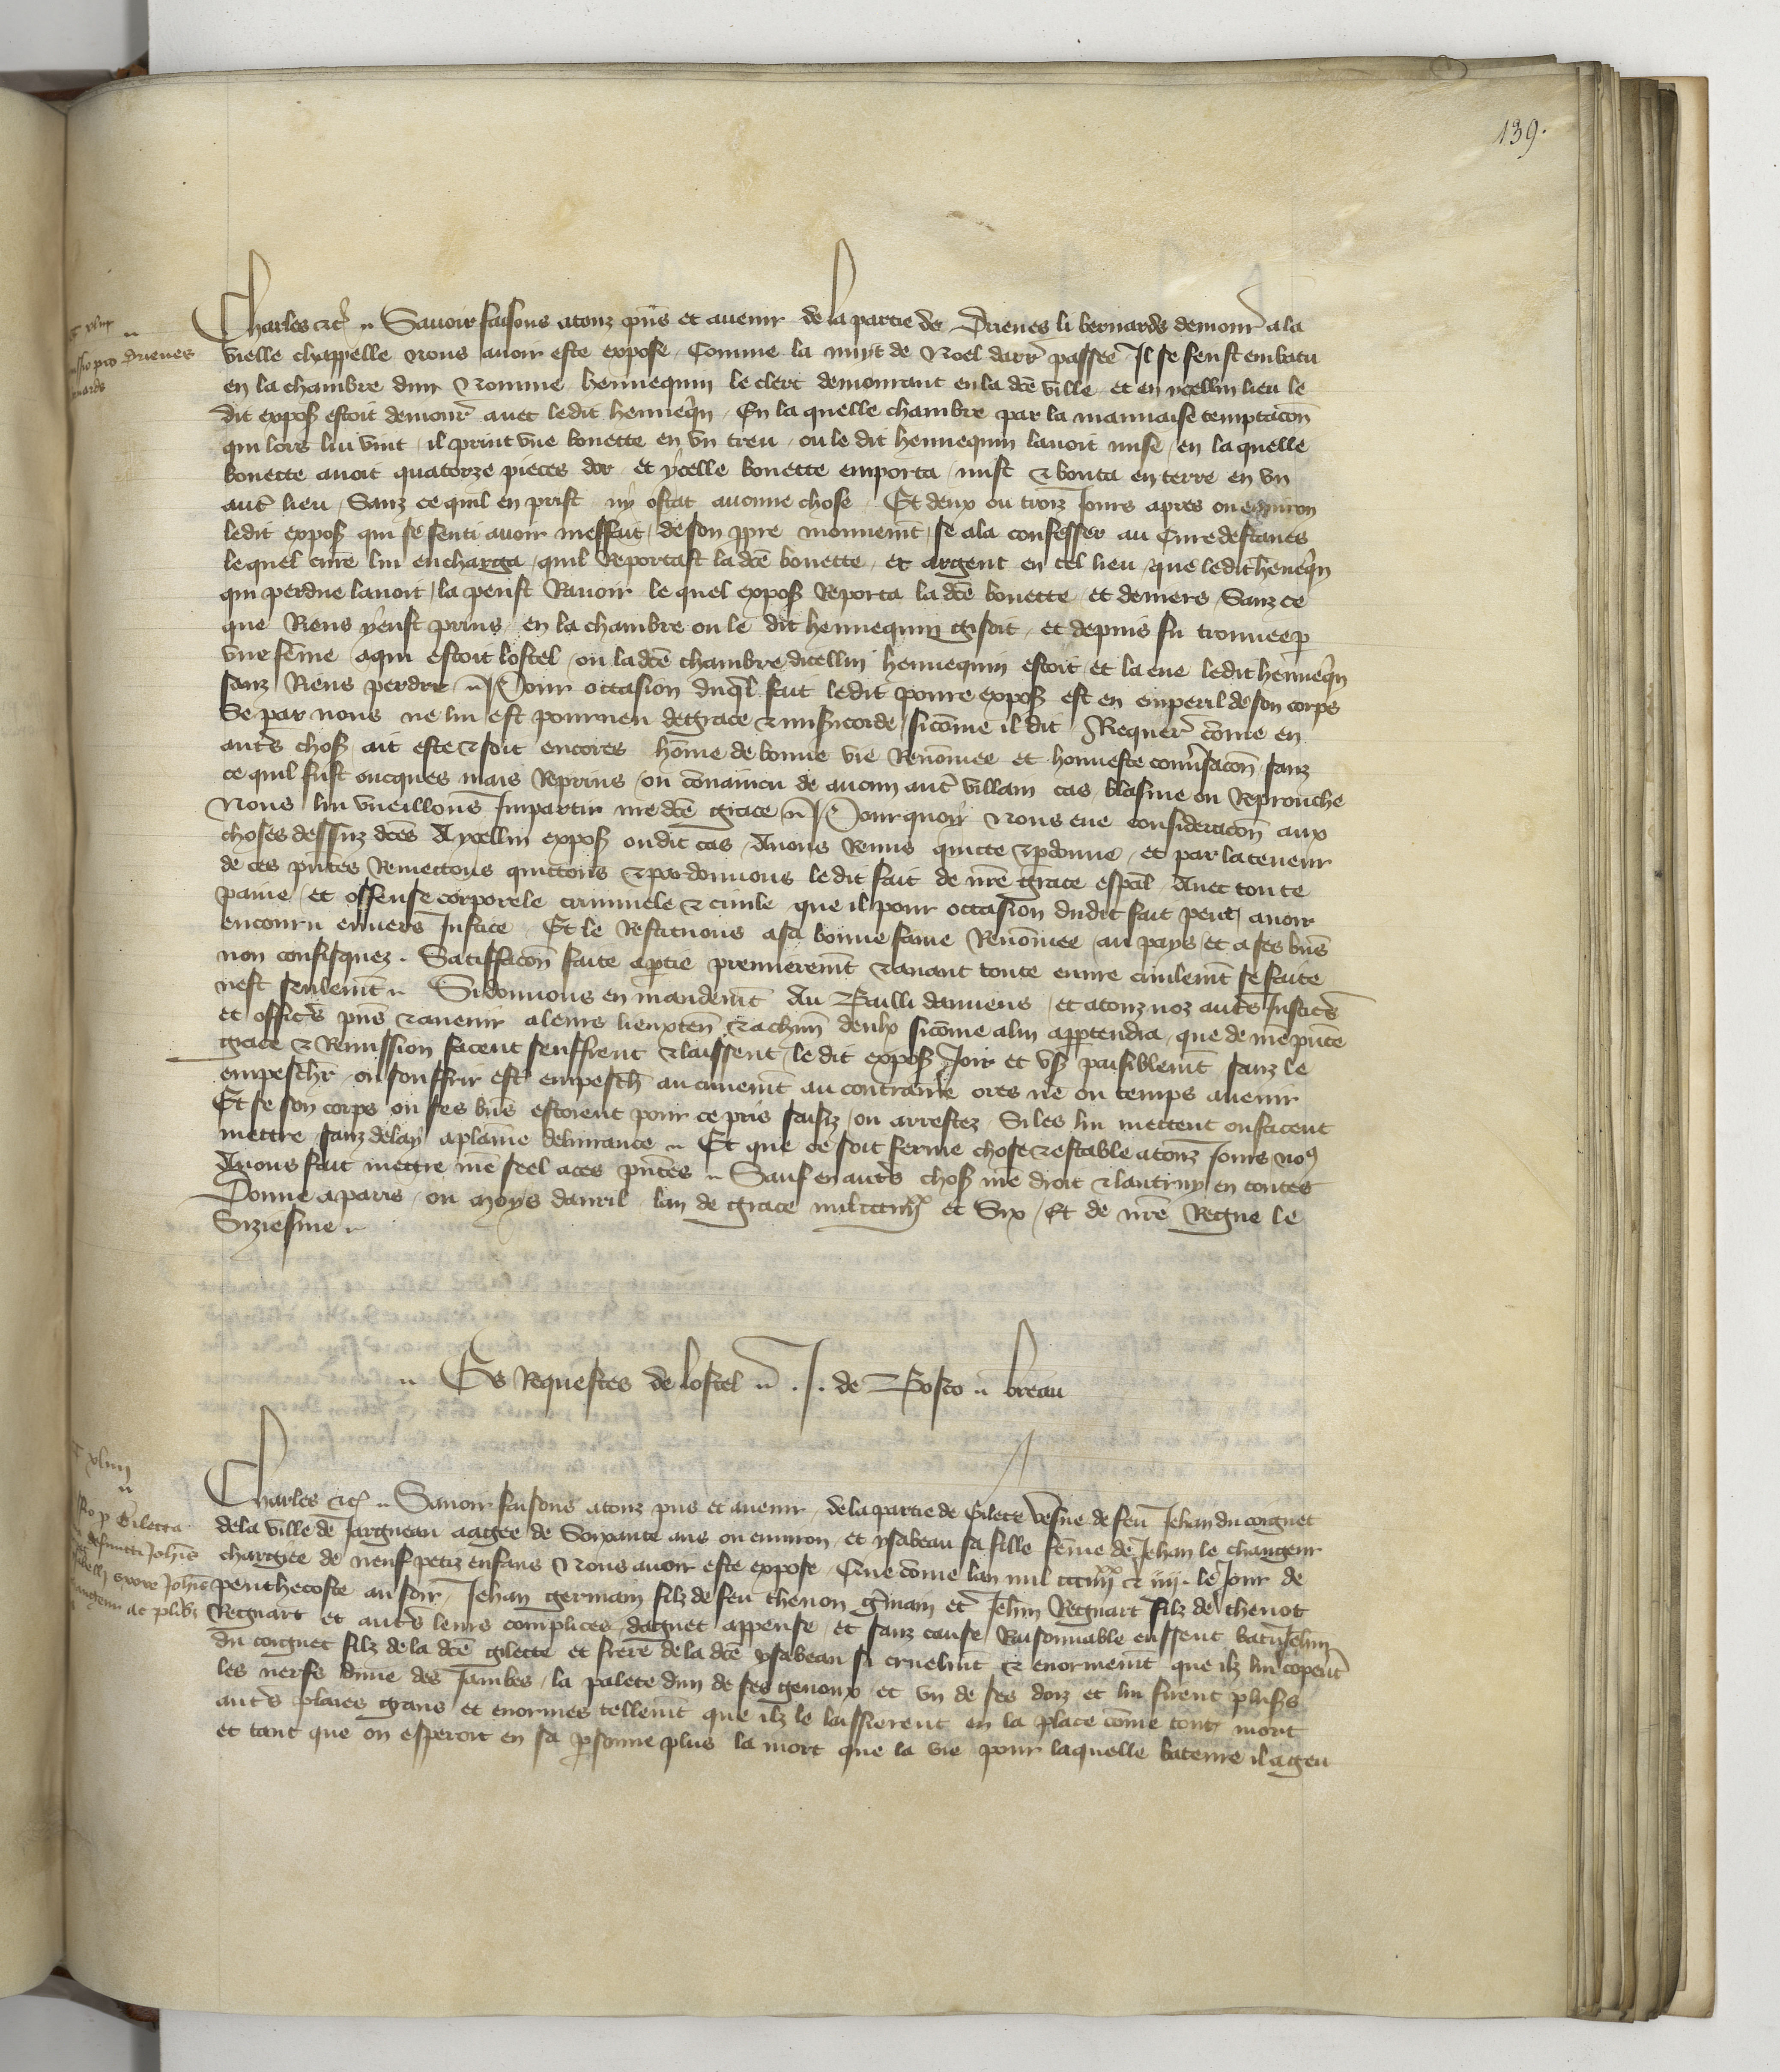 139.
Charles etc̃ Sauoir faisons atouz p̃ns et auenir de la partie de Drieues li bernards demour̃ a la
vielle chappelle nous auoir este expose Comme la nuyt de Noel darr̃ passee Il se feust embatu
en la chambre dun nomme hennequin le clerc demourant en la dc̃e ville et en ycellui lieu le
dit expos̃ estoit demour̃ auec ledit henneq̃n En la quelle chambre par la mauuaise temptac̃on
qui lors lui vint il print vne bouette en vn treu ou le dit hennequin lauoit mise en la quelle
bouette auoit quatorze pieces dor et ycelle bouette emporta mist & bouta en terre en vn
aut̃ lieu Sanz ce quil en prist ny ostat aucune chose Et deux ou trois Jours apres ou enuiron
ledit expos̃ qui se senti auoir meffait de son ppre mouuem̃t se ala confesser au Cure destaues
lequel cure lui encharga quil Reportast la dc̃e bouette et argent en tel lieu que ledit heneq̃n
qui perdue lauoit la peust Rauoir le quel expos̃ Reporta la dc̃e bouette et deniers Sanz ce
que Riens y eust prins en la chambre ou le dit hennequin gisoit et depuis fu trouuee p
vne fem̃e a qui estoit lostel ou la dc̃e chambre dicellui hennequin estoit et la eue ledit henneq̃n
sanz Riens perdre Pour occasion duq̃l fait ledit poure expos̃ est en emperil de son corps
Se par nous ne lui est pourueu de grace & mis̃icorde sicom̃e il dit Requer̃ com̃e en
aut̃s chos̃ ait este & soit encores hom̃e de bonne vie Renom̃ee et honneste conu̾sac̃on sanz
ce quil fust oncques mais Reprins ou conuaincu de aucun aut̃ villain cas blasme ou Reprouche
Nous lui vueillons Impartir n̄re dc̃e grace Pourquoy Nous eue considerac̃on aux
choses dessuz dc̃es A ycellui expos̃ oudit cas Auons Remis quicte & p̱donne et par la teneur
de ces p̃ntes Remettons quittons & pardonnons le dit fait de n̄re grace esp̃al Auec toute
paine et offense corporele criminele & ciuile que il pour occasion dudit fait peut auoir
encouru enuers Justice Et le Restituons a sa bonne fame Renom̃ee au pays et a ses biẽs
non confisquez Satisfac̃on faite a p̱tie premierem̃t & auant toute euure ciuilem̃t se faite
nest seulem̃t Si donnons en mandem̃t Au Bailli damiens et atouz noz aut̃s Justic̃s
et offic̃s p̃ns & auenir a leurs lieuxteñ & a ch̃un deulx sicom̃e a lui app̱tendra que de n̄re p̃nte
grace & Remission facent seuffrent & laissent le dit expos̃ Joir et vs̃ paisiblem̃t sanz le
empesch̃r ou souffrir est̃ empesch̃ aucunem̃t au contraire ores ne ou temps auenir
Et se son corps ou ses biẽs estoient pour ce pris saisiz ou arrestez Si les lui mettent ou facent
mettre sanz delay a plaine deliurance Et que ce soit ferme chose & estable a touz Jours no9
Auons fait mettre n̄re seel a ces p̃ntes Sauf en aut̃s chos̃ n̄re droit & lautruy en toutes
Donne a paris ou moys dauril lan de grace mil ccciiijxx et Six Et de n̄re Regne le
Siziesme
Es Requestes de lostel .J. de Bosco breau
Charles etc̃ Sauoir faisons atouz p̃ns et auenir de la partie de Gilete vef̃ue de feu Jehan du coignet
de la ville de Jargueau aagee de Soixante ans ou enuiron et ysabeau sa fille fem̃e de Jehan le changeur
chargiee de neuf petiz enfans Nous auoir este expose Que com̃e lan mil ccciiijxx & iiij. le Jour de
penthecoste au soir Jehan germain filz de feu thenon g̃main et Jehñin Regnart filz de thenot
Regnart et aut̃s leurs complices daguet appense et sanz cause Raisonnable eussent batu Jehñin
du coignet filz de la dc̃e gilette et frere de la dc̃e ysabeau si cruelm̃t & enormem̃t que ilz lui coper̃t
les nerfs dune des Jambes la palete dun de ses genoux et vn de ses doiz et lui firent plus̃s
aut̃s plaies grans et enormes tellem̃t que ilz le laissierent en la place com̃e tout mort
et tant que on esperoit en sa p̱sonne plus la mort que la vie pour laquelle bateure il a geu